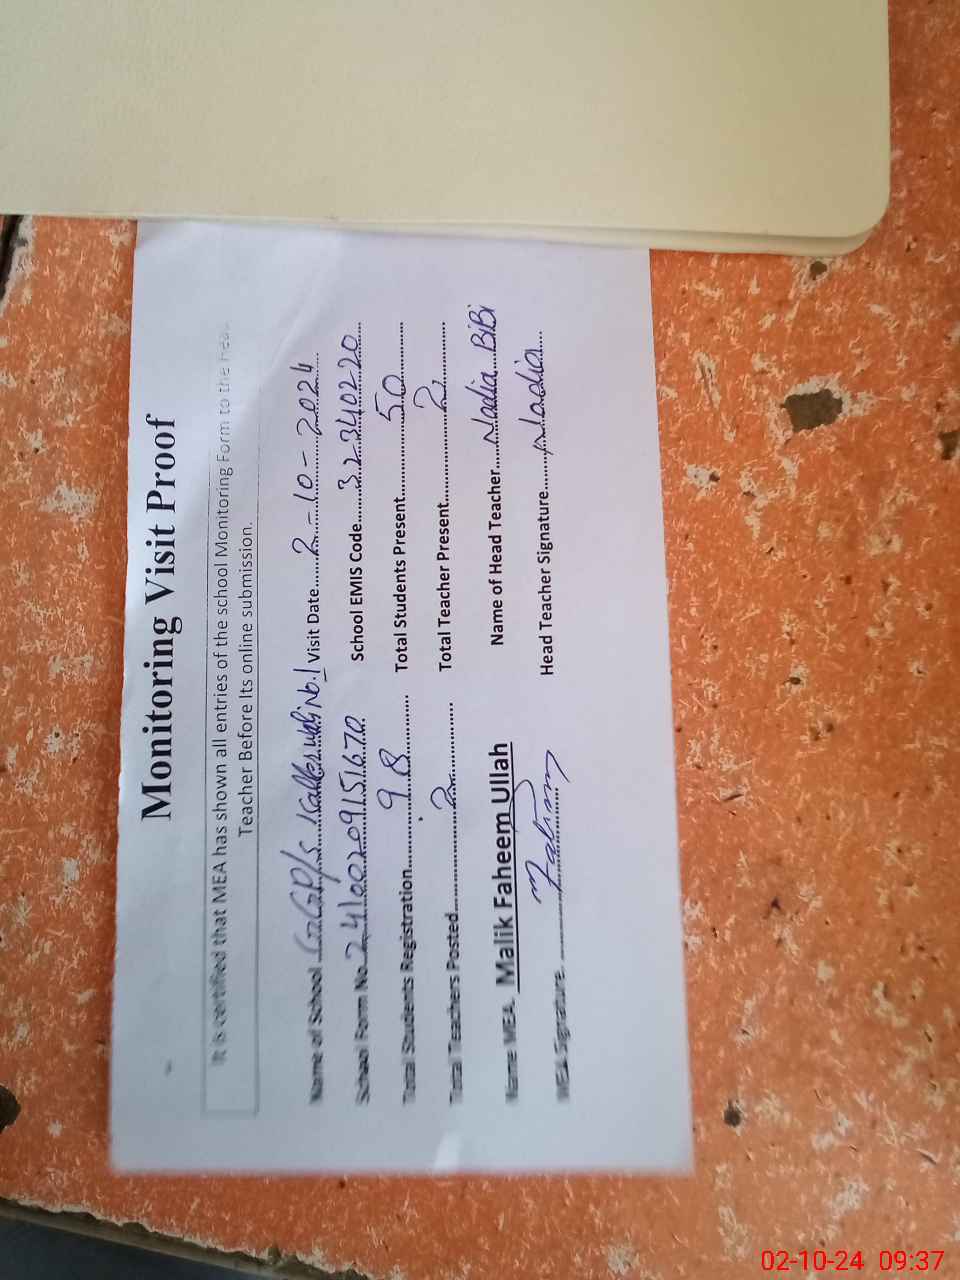 Monitoring Visit Proof
It is certified that MEA has shown all entries of the school Monitoring Form to the head
Teacher Before Its online submission.
Name of School GGP/S Kallerwali No.1 Visit Date.....2-10-2024
School Form No. 24100209151670 School EMIS Code.....32340220
Total Students Registration.....98 Total Students Present.....50
Total Teachers Posted.....2 Total Teacher Present.....2
Name MEA. Malik Faheem Ullah Name of Head Teacher.....Nadia BiBi
MEA Signature. Faheem Head Teacher Signature.....Nadia
02-10-24 09:37